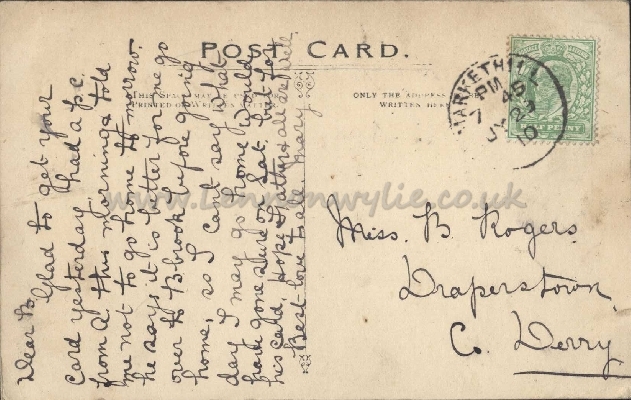 POST CARD.
THIS SPACE MAY BE
PRINTED OR WRITTEN MATTER
ONLY THE ADDRESS
WRITTEN HERE
MARKETHILL
PM
7 45
JY 29
10
HALFPENNY
www.lennonwylie.co.uk
Dear B.
Glad to get your
card yesterday. I had a p.c.
from A. this morning & told
me not to go home to morrow.
he says it is better for me go
over to B.brook before going
home, so I can't say what
day I may go home. Would
have gone sure on Sat. but for
his card, Hope Father & all are well
Best love to all Mary
Miss. B Rogers.
Draperstown,
Co. Derry